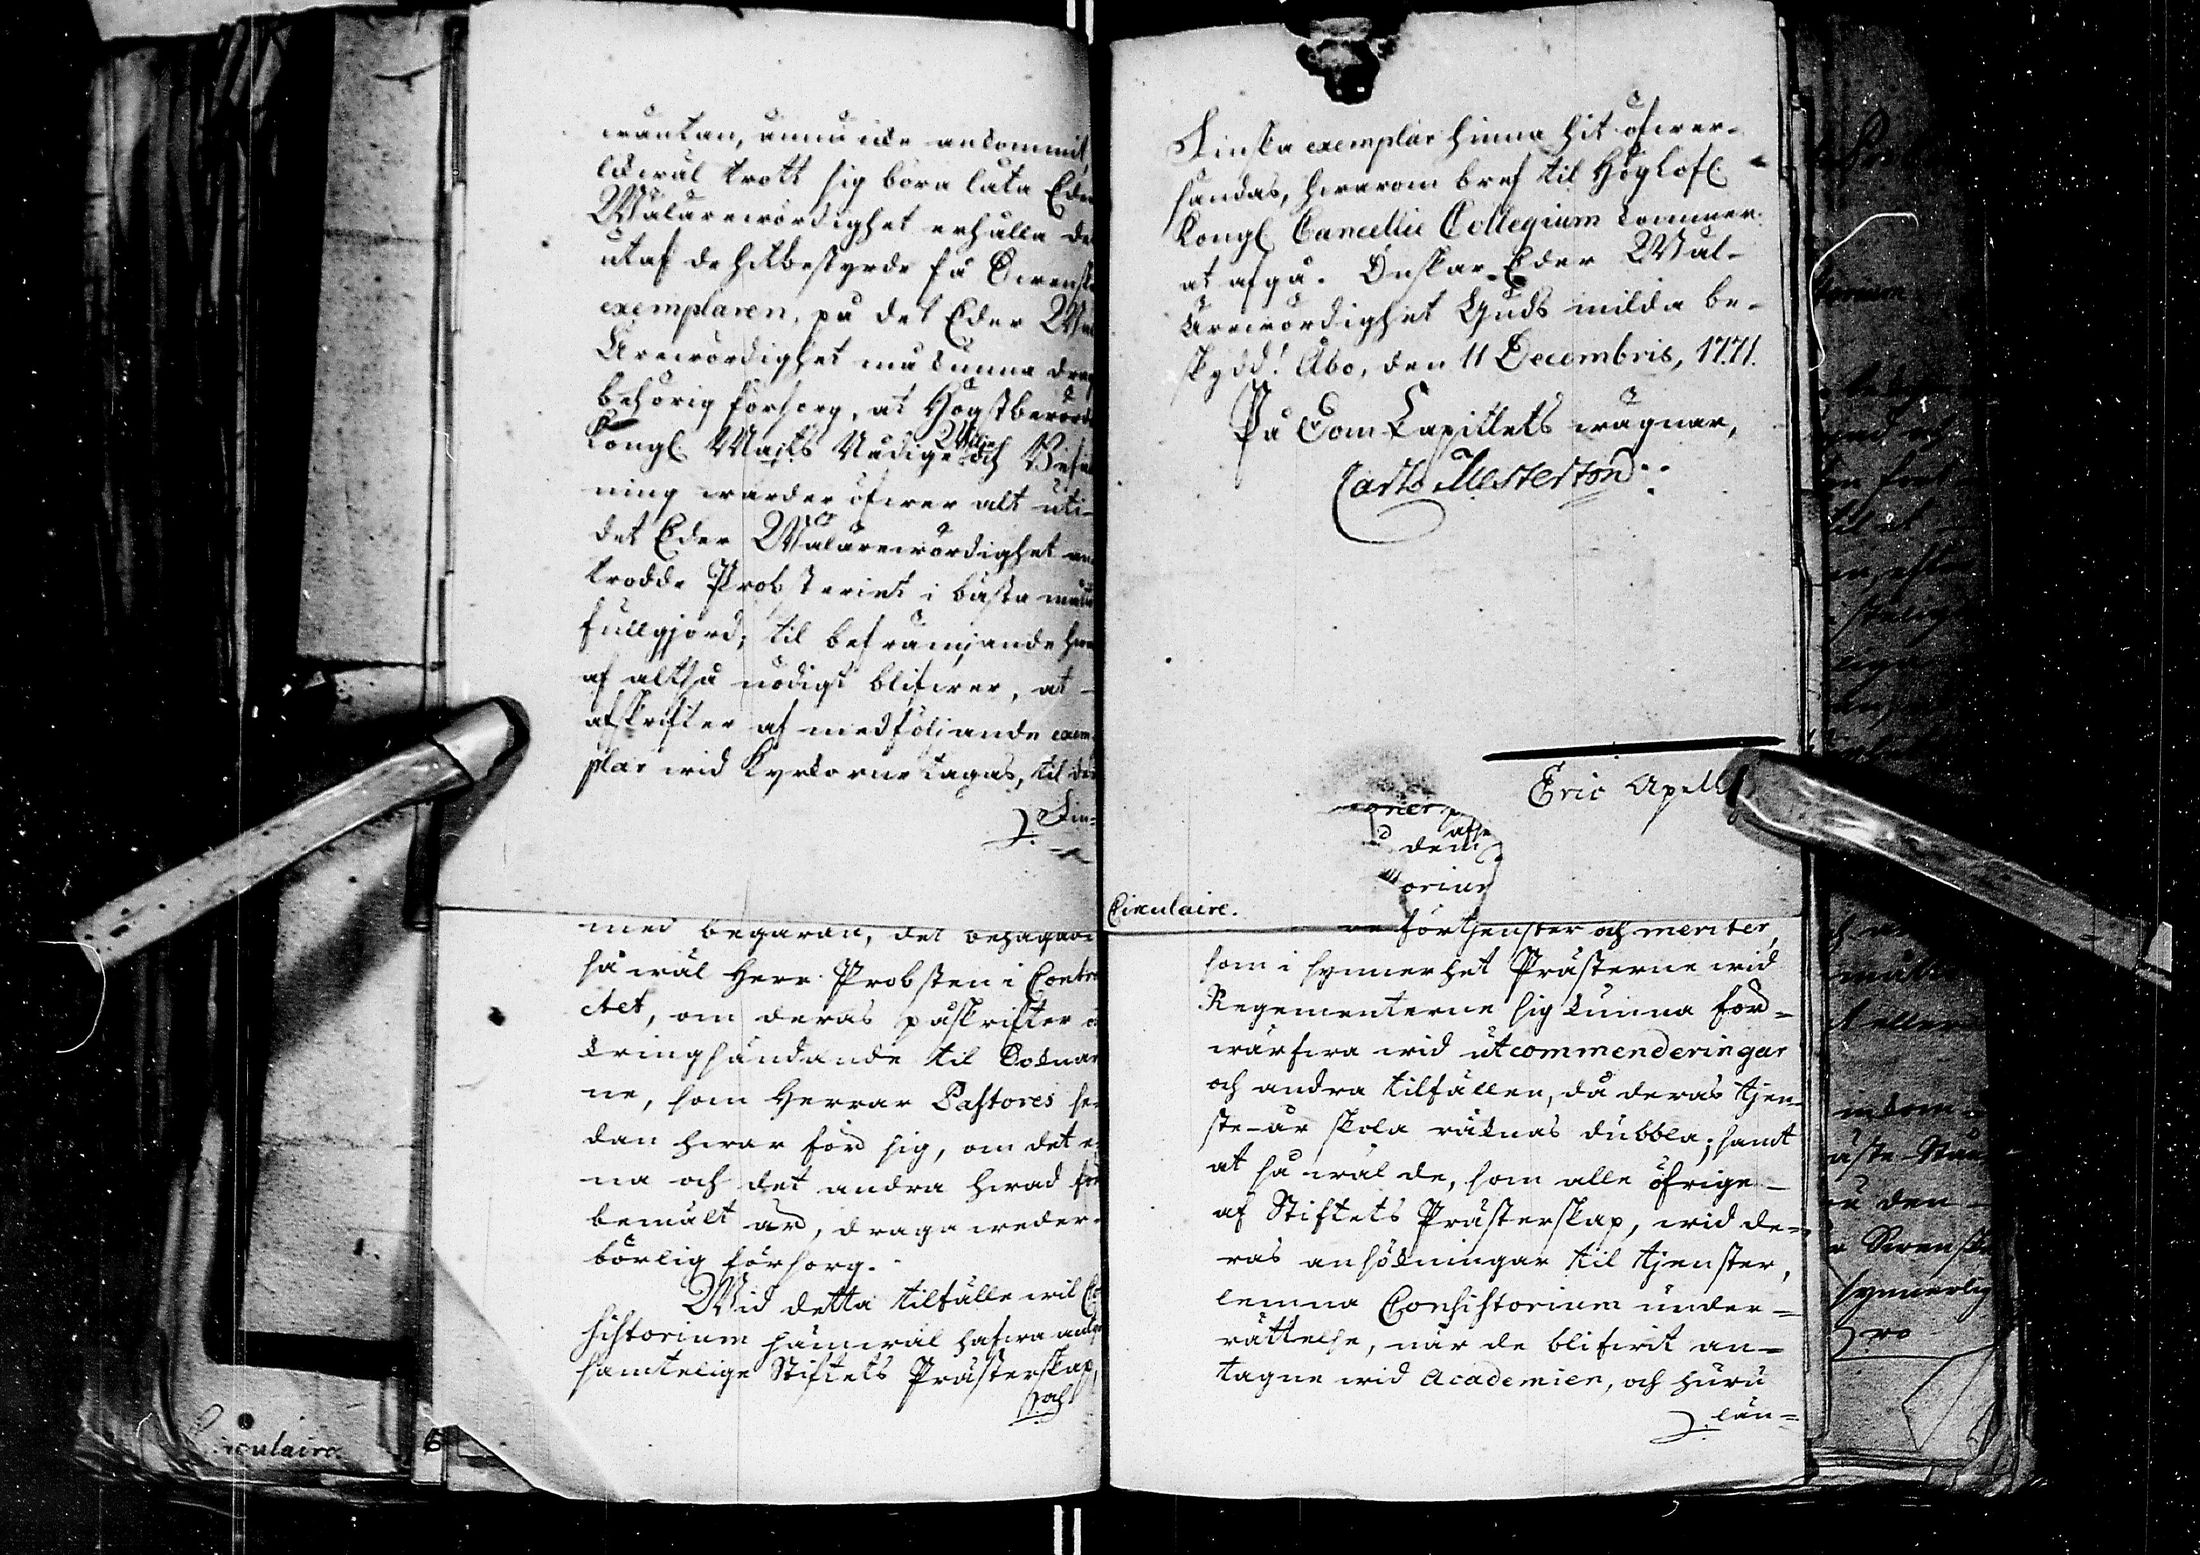 wäntan, ännu icke ankommit,
likwäl trott sig böra låta Eder
Wälärewördighet erhålla de
utaf de hitbestyrde få Swenska
exemplaren, på det Eder Wäl
Ärewördighet må kunna draga
behörig försorg, at Högstberörde
Kongl. Maj:ts Nådige Wilja och Befal
ning warder öfwer alt uti
det Eder Wälärewördighet an
trodde Probsteriet i bästa måtto
fullgjord; til befrämjande hwar
af altså nödigt blifwer, at
afskrifter af medföljande exem
plar wid Kyrkorne tagas, til des
Fin-
med begäran, det behagade
så wäl Herr Probsten i Contra
ctet, om deras påskrifter
kringsändande til Soknar
ne, som Herrar Pastores se
dan hwar för sig, om det e
na och det andra hwad för
bemält är, draga weder-
börlig försorg.
Wid detta tilfälle wil Con
sistorium jämwäl hafwa
samtelige Stiftets Prästerskap,
och
Circulaire.
6
Finska exemplar hinna hit öfwer-
sändas, hwarom bref til Höglofl.
Kongl. Cancellie Collegium kommer
at afgå. Önskar Eder Wäl-
Ärewördighet Guds milda be-
skydd! Åbo, den 11 Decembris, 1771.
På Dom Capitlets wägnar,
Carl Mesterton
Eric Apell
dem
Circulaire.
förtjenster och meriter,
som i synnerhet Prästerne wid
Regementerne sig kunna för-
wärfwa wid utcommenderingar
och andra tilfällen, då deras tjen-
ste-år skola räknas dubbla; samt
at så wäl de, som alle öfrige
af Stiftets Prästerskap, wid de-
ras ansökningar til tjenster,
lemna Consistorium under-
rättelse, när de blifwit an-
tagne wid Academien, och huru
län-